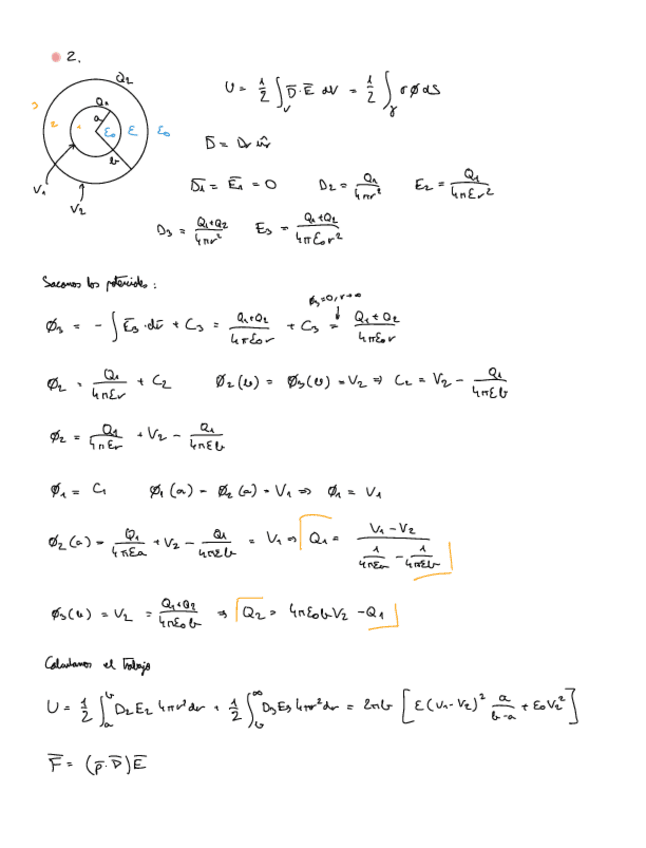 2.
Q₂
Q₁
3 2 1 a ε₀ ε ε₀
b
V₁
V₂
U = 1/2 ∫_V D̄·Ē dV = 1/2 ∫ σϕ dS
D̄ = Dr ûr
D̄₁ = Ē₁ = 0 D₂ = Q₁/4πr² E₂ = Q₁/4πεr²
D₃ = (Q₁+Q₂)/4πr² E₃ = (Q₁+Q₂)/4πε₀r²
Sacamos los potenciales:
ϕ₃=0, r→∞
ϕ₃ = - ∫ Ē₃·dr̄ + C₃ = (Q₁+Q₂)/4πε₀r + C₃ = (Q₁+Q₂)/4πε₀r
ϕ₂ = Q₁/4πεr + C₂ ϕ₂(b) = ϕ₃(b) = V₂ ⇒ C₂ = V₂ - Q₁/4πεb
ϕ₂ = Q₁/4πεr + V₂ - Q₁/4πεb
ϕ₁ = C₁ ϕ₁(a) = ϕ₂(a) = V₁ ⇒ ϕ₁ = V₁
ϕ₂(a) = Q₁/4πεa + V₂ - Q₁/4πεb = V₁ ⇒ Q₁ = (V₁ - V₂)/(1/4πεa - 1/4πεb)
ϕ₃(b) = V₂ = (Q₁+Q₂)/4πε₀b ⇒ Q₂ = 4πε₀bV₂ - Q₁
Calculamos el trabajo
U = 1/2 ∫_a^b D₂E₂ 4πr²dr + 1/2 ∫_b^∞ D₃E₃ 4πr²dr = 2πb [ε(V₁-V₂)² a/(b-a) + ε₀V₂²]
F̄ = (p̄·∇̄)Ē